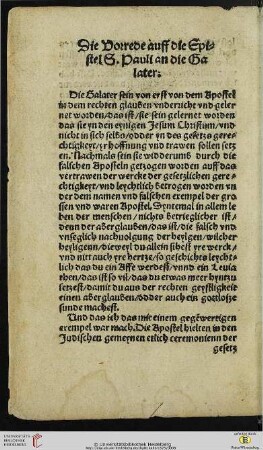 Die Vorrede auff die Epi-
stel S. Pauli an die Ga
later:
Die Galater sein von erst von dem Apostel
in dem rechten glauben vnderricht vnd geler
net worden/das ist/sie sein gelernet worden
das sie yn den eynigen Jesum Christum/vnd
nicht in sich selbs/odder yn des gesetzs gerech
tigkeyt/yr hoffnung vnd trawen sollen setz
en. Nachmals sein sie widderumb durch die
falschen Aposteln getzogen worden auff das
vertrawen der wercke der gesetzlichen gere-
chtigkeyt/vnd leychtlich betrogen worden vn
der dem namen vnd falschen exempel der gro
ssen vnd waren Apostel. Syntemal in allem le
ben der menschen/nichts betrieglicher ist/
denn der aberglauben/das ist/die falsch vnd
vnseglich nachuolgung der heyligen/wilcher
heyligenn/dieweyl du allein sihest yre werck/
vnd nitt auch yre hertze/so geschichts leycht-
lich das du ein Affe werdest/vnnd ein Leuia
then/das ist so vil/das du etwas meer hynzu
setzest/damit du aus der rechten geystligkeit
einen aberglauben/odder auch ein gottlosze
sunde machest.
Vnnd das ich das mit einem gegenwertigen
exempel war mach. Die Apostel hielten in den
Judischen gemeynen etlich ceremonienn der
gesetz
UNIVERSITÄTS-
BIBLIOTHEK
HEIDELBERG
© Universitätsbibliothek Heidelberg